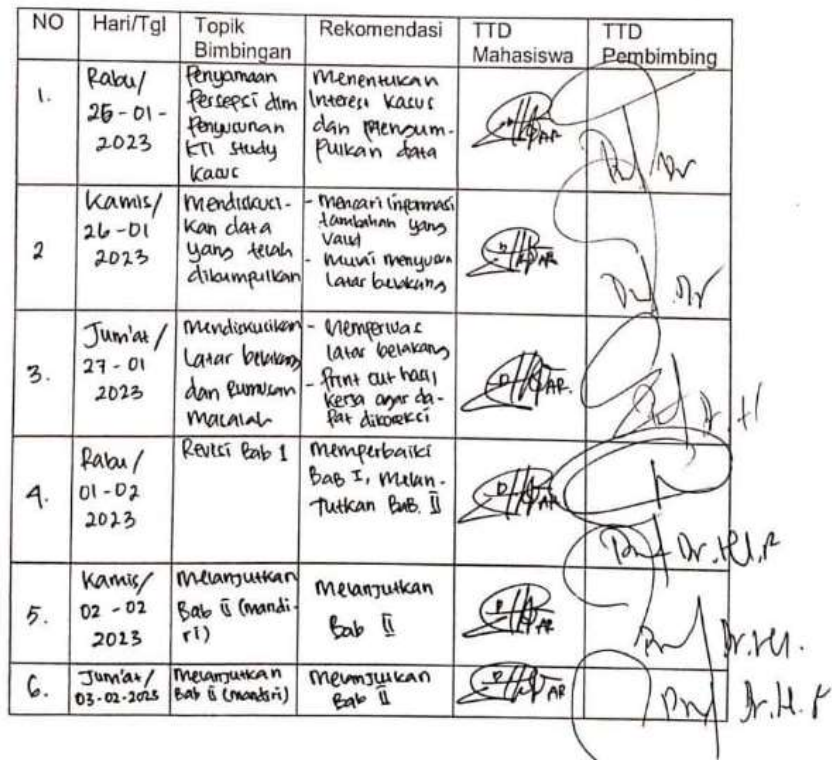 NO Hari/Tgl Topik Bimbingan Rekomendasi TTD Mahasiswa TTD Pembimbing
1. Rabu/ 25-01-2023
Penyamaan
Persepsi dlm
Penyusunan
KTI Study
Kasus
Menentukan
Interesi Kasus
dan Mengum-
pulkan data
2 Kamis/
26-01
2023
Mendiskusi-
kan data
yang telah
dikumpulkan
- Mencari informasi
tambahan yang
Valid
- Mulai menyusun
Latar belakang
3. Jum'at/
27-01
2023
Mendiskusikan
Latar belakang
dan Rumusan
Masalah
- Memperluas
latar belakang
- Print out hasil
kerja agar da-
pat dikoreksi
4. Rabu/
01-02
2023
Revisi Bab 1
Memperbaiki
Bab I, Melan-
jutkan Bab. II
5. Kamis/
02-02
2023
Melanjutkan
Bab II (mandi-
ri)
Melanjutkan
Bab II
6. Jum'at/
03-02-2023
Melanjutkan
Bab II (mandiri)
Melanjutkan
Bab II